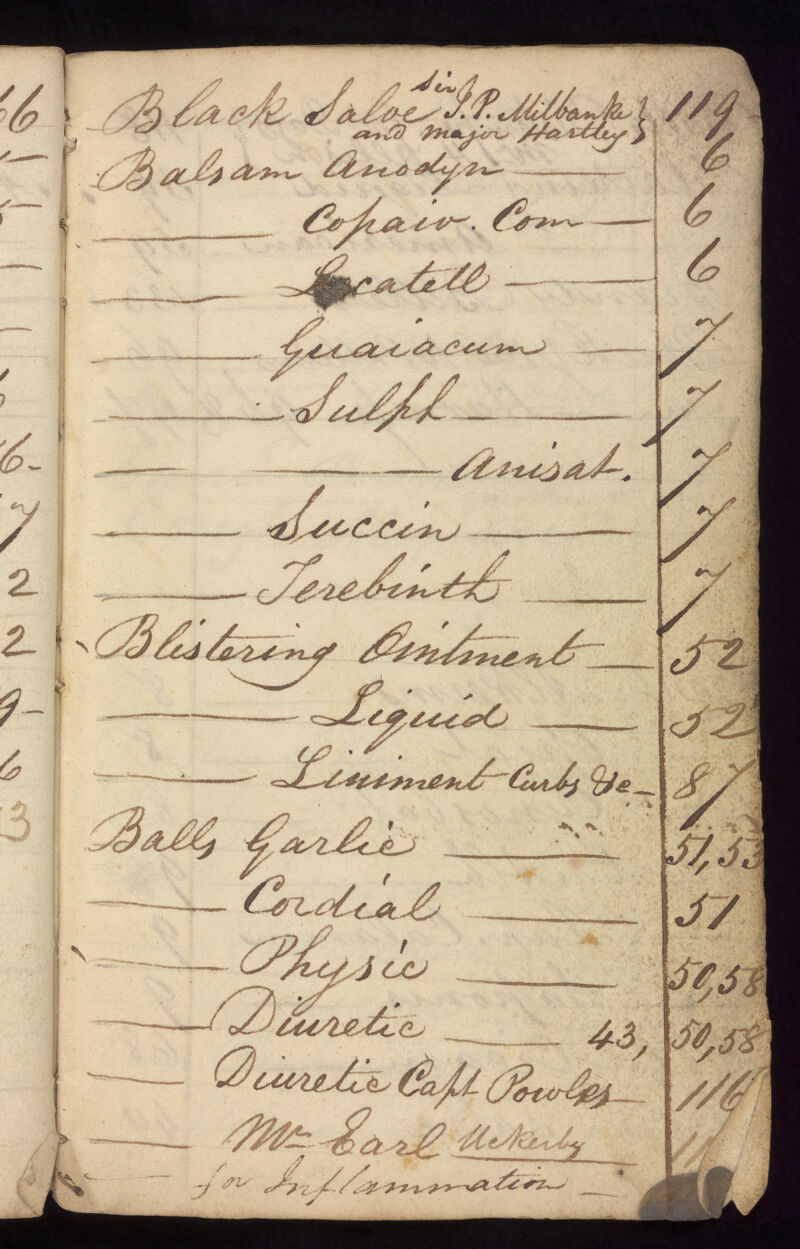 Black Salve Sir J. P. Milbanke } 119
and Major Hartley
Balsam Anodyn — 6
— Copaiv. Com — 6
— Locatell — 6
— Guaiacum — 7
— Sulph — 7
— — Anisat. 7
— Succin — 7
— Terebinth — 7
Blistering Ointment — 52
— Liquid — 52
— Liniment Curbs &c — 87
Balls Garlic — 51, 53
— Cordial — 51
— Physic — 50, 58
— Diuretic — 43, 50, 58
— Diuretic Capt Powlks — 116
— Mr Earl Uckerby
— for Inflammation —